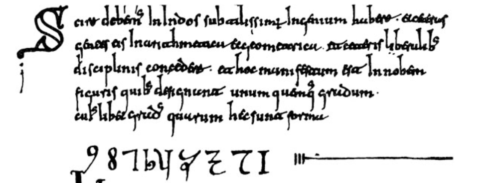 Scire debem̄ In Indos subtilissimū Ingenium habere. et ceteras
gentes eis In arithmetica et geometrica. et ceteris liberalib;
disciplinis concedere. et hoc manifestum est In nobem
figuris quib; designant unum quemq; gradum.
cuius libet gradus quarum hec sunt forma
9 8 7 6 4 2 1